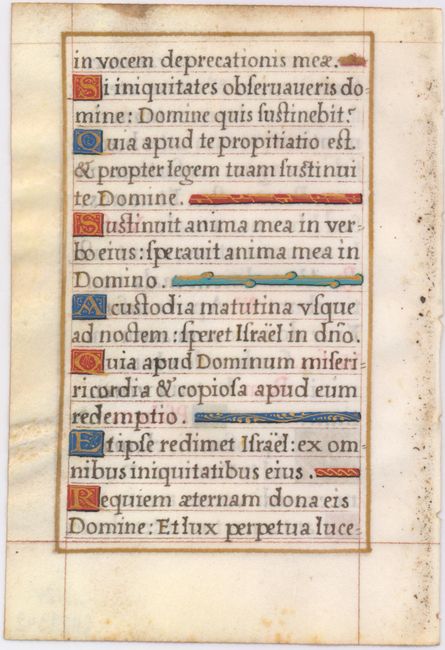 in vocem deprecationis meæ.
Si iniquitates obſeruaueris do-
mine: Domine quis ſuſtinebit?
Quia apud te propitiatio est.
& propter legem tuam ſuſtinui
te Domine.
Sustinuit anima mea in ver-
bo eius: ſperauit anima mea in
Domino.
A custodia matutina vſque
ad noctem: ſperet Iſraël in dño.
Quia apud Dominum miſeri-
ricordia & copioſa apud eum
redemptio.
Et ipſe redimet Iſraël: ex om-
nibus iniquitatibus eius.
Requiem æternam dona eis
Domine: Et lux perpetua luce-